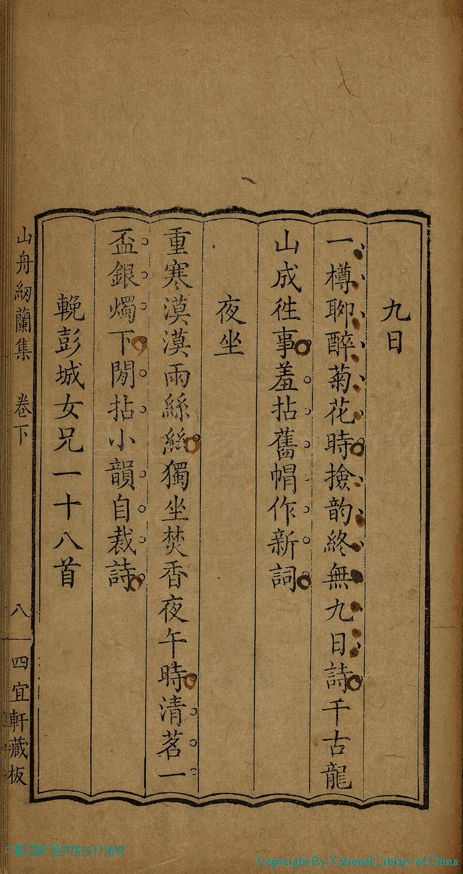 九日
一樽聊醉菊花時撿韵終無九日詩千古龍
山成徃事羞拈舊帽作新詞
夜坐
重寒漠漠雨絲絲獨坐焚香夜午時清茗一
盃銀燭下閒拈小韻自裁詩
輓彭城女兄一十八首
山舟紉蘭集 卷下 八 四宜軒藏板
Copyright By National Library of China